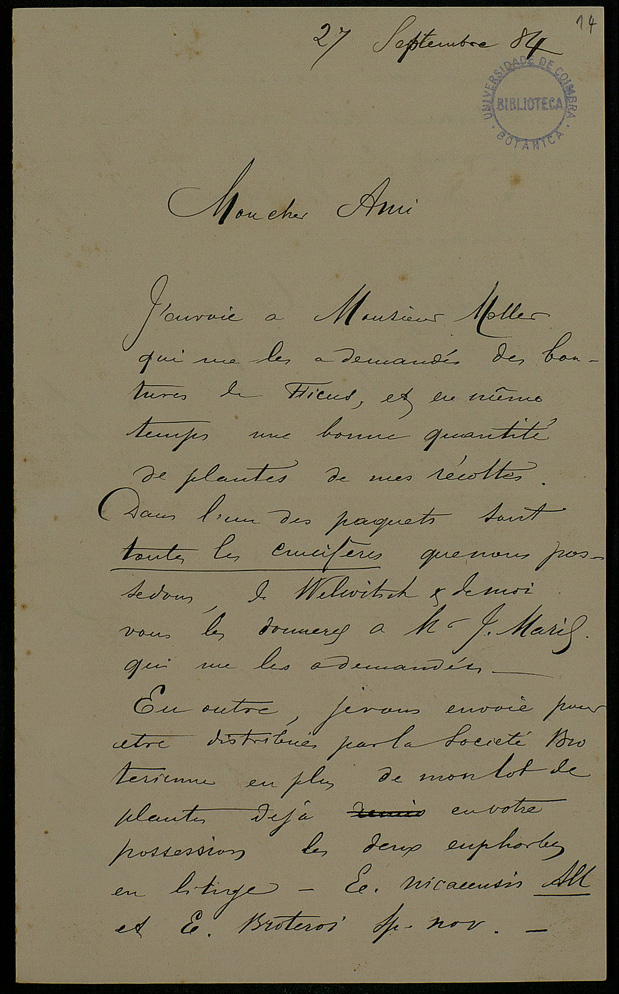 14
27 Septembre 84
UNIVERSIDADE DE COIMBRA
BIBLIOTECA
BOTANICA
Mon cher Ami
J'envoie a Monsieur Moller
qui me les a demandés des bou-
tures de Ficus, et en même
temps une bonne quantité
de plantes de mes récoltes.
Dans l'un des paquets sont
toutes les crucifères que nous pos-
sedons, de Welwitsch & de moi
vous les donnerez a Mr J. Mariz.
qui me les a demandées —
En outre, je vous envoie pour
etre distribués par la Societé Bro
terienne en plus de mon lot de
plantes dejà en votre
possession les deux euphorbes
en litige — E. nicaeensis All
et E. Broteroi sp. nov. —